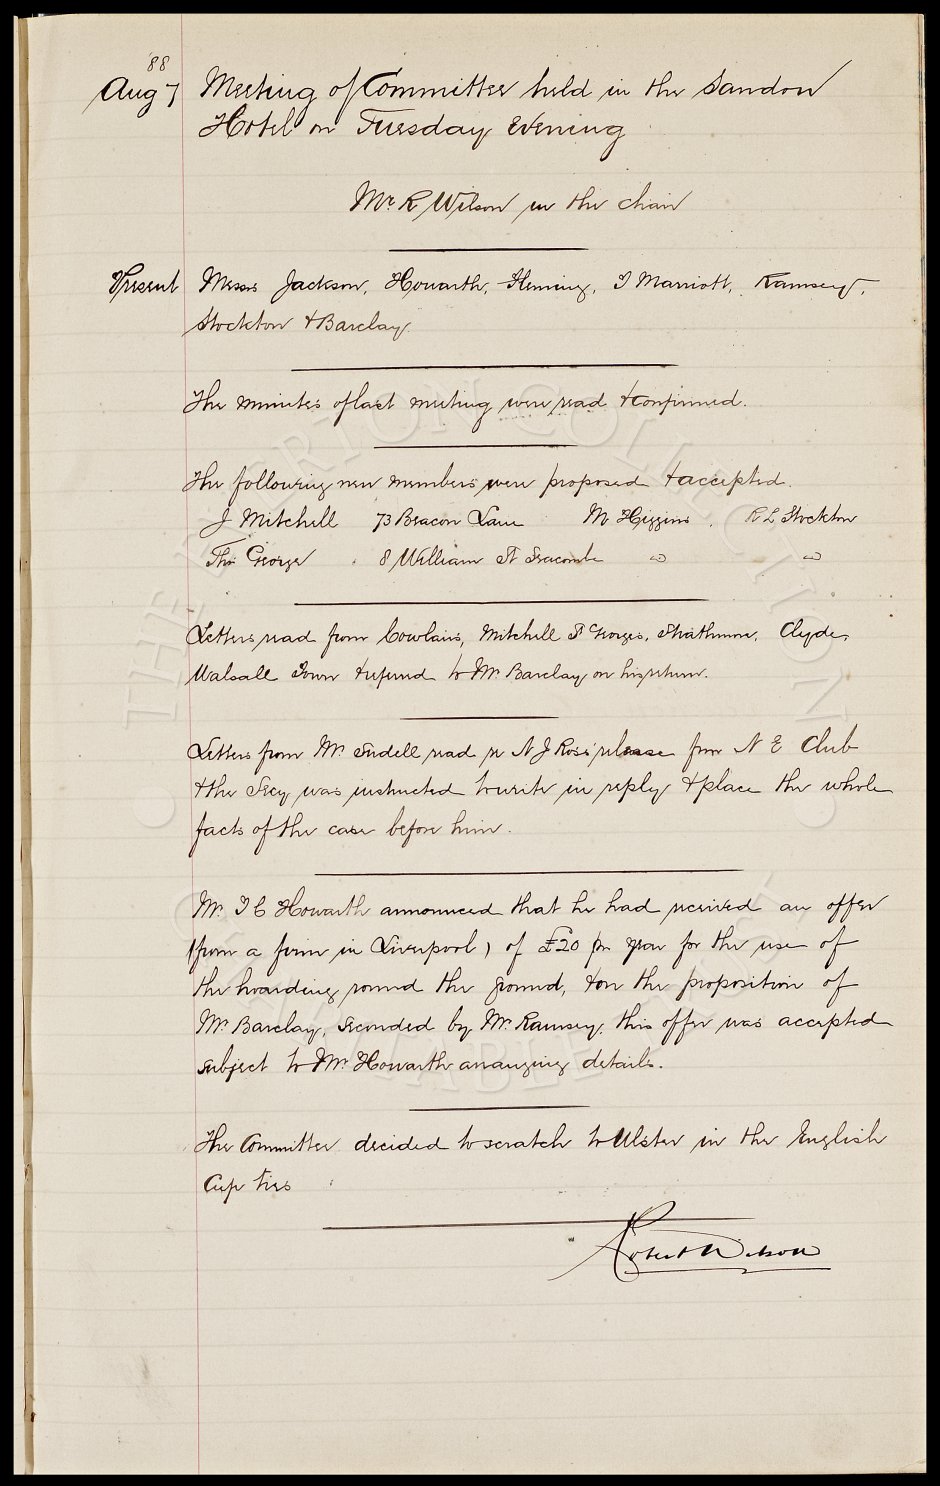 88
Aug 7 Meeting of Committee held in the Sandon
Hotel on Tuesday Evening
Mr R Wilson in the chair
Present Messrs Jackson, Howarth, Fleming, T Marriott, Ramsey,
Stockton & Barclay
The minutes of last meeting were read & confirmed.
The following new members were proposed & accepted.
J Mitchell 73 Beacon Lane Mr Higgins. R L Stockton
Thos George. 8 William St Seacombe " "
Letters read from Cowlairs, Mitchell St Georges, Strathmore, Clyde,
Walsall Town & referred to Mr Barclay on his return.
Letters from Mr Sudell read re N J Ross' release from N E Club
& the Secy was instructed to write in reply & place the whole
facts of the case before him.
Mr. T C Howarth announced that he had received an offer
(from a firm in Liverpool) of £20 per year for the use of
the hoarding round the ground, & on the proposition of
Mr Barclay, seconded by Mr. Ramsey, this offer was accepted
subject to Mr Howarth arranging details.
The Committee decided to scratch to Ulster in the English
Cup ties
Robert Wilson
THE EVERTON COLLECTION
CHARITABLE TRUST